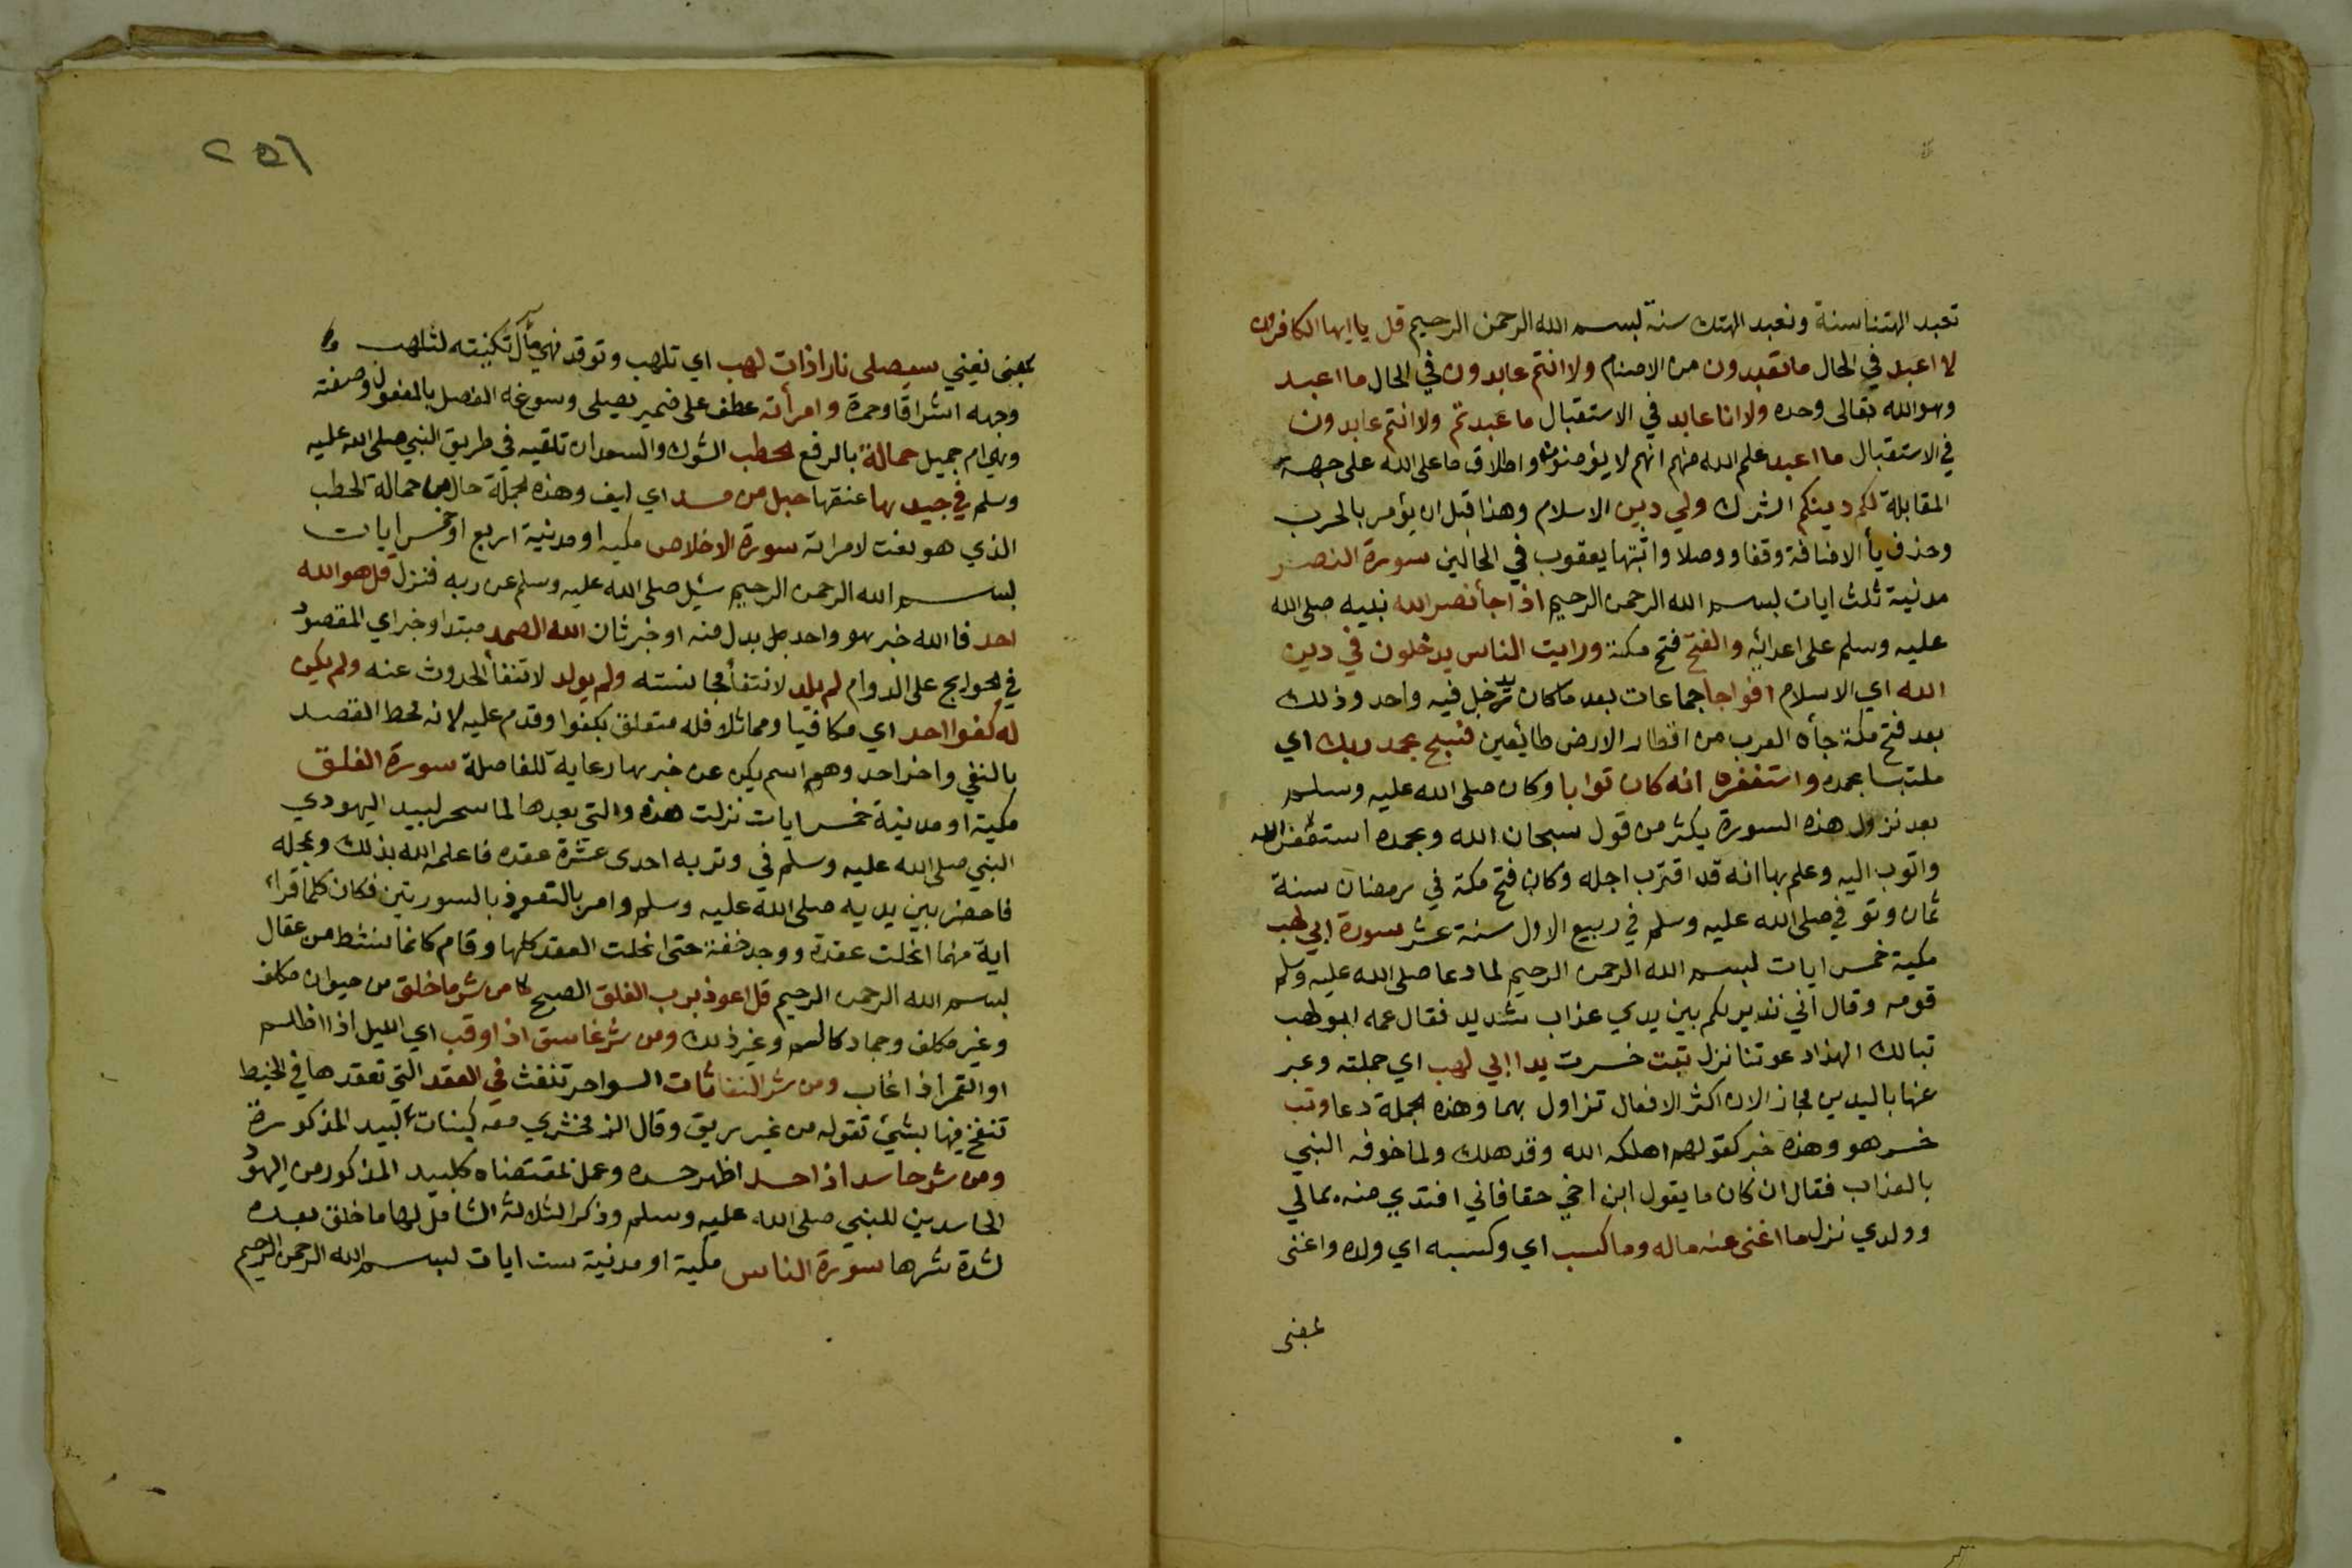 تعبد الهتنا سنة ونعبد الهتك سنة بسم الله الرحمن الرحيم قل يا ايها الكافرون
لا اعبد في الحال ما تعبدون من الاصنام ولا انتم عابدون في الحال ما اعبد
وهو الله تعالى وحده ولا انا عابد في الاستقبال ما عبدتم ولا انتم عابدون
في الاستقبال ما اعبد علم الله منهم انهم لا يؤمنون واطلاق ما على الله على جهة
المقابلة لكم دينكم الشرك ولي دين الاسلام وهذا قبل ان يؤمر بالحرب
وحذف يأ الاضافة وقفا ووصلا واثبتها يعقوب في الحالين سورة النصر
مدنية ثلث ايات بسم الله الرحمن الرحيم اذا جأ نصر الله نبيه صلى الله
عليه وسلم على اعدائه والفتح فتح مكة ورايت الناس يدخلون في دين
الله اي الاسلام افواجا جماعات بعد ما كان يدخل فيه واحد وذلك
بعد فتح مكة جأه العرب من اقطار الارض طائعين فسبح بحمد ربك اي
ملتبسا بحمده واستغفره انه كان توابا وكان صلى الله عليه وسلم
بعد نزول هذه السورة يكثر من قول سبحان الله وبحمده استغفر الله
واتوب اليه وعلم بها انه قد اقترب اجله وكان فتح مكة في رمضان سنة
ثمان وتوفي صلى الله عليه وسلم في ربيع الاول سنة عشر سورة ابي لهب
مكية خمس ايات بسم الله الرحمن الرحيم لما دعا صلى الله عليه وسلم
قومه وقال اني نذير لكم بين يدي عذاب شديد فقال عمه ابو لهب
تبا لك الهذا دعوتنا نزل تبت خسرت يدا ابي لهب اي جملته وعبر
عنها باليدين مجاز الان اكثر الافعال تزاول بهما وهذه الجملة دعا وتب
خسر هو وهذه خبر كقولهم اهلكه الله وقد هلك ولما خوفه النبي
بالعذاب فقال ان كان ما يقول ابن اخي حقا فاني افتدي منه بمالي
وولدي نزل ما اغنى عنه ماله وما كسب اي وكسبه اي ولده واغنى
بمعنى
٢٥٦
بمعنى يغني سيصلى نارا ذات لهب اي تلهب وتوقد فهي مآل تكنيته لتلهب
وجهه اشراقا وحمرة وامرأته عطف على ضمير يصلى وسوغه الفصل بالمفعول وصفته
وهي ام جميل حمالة بالرفع الحطب الشوك والسعدان تلقيه في طريق النبي صلى الله عليه
وسلم في جيدها عنقها حبل من مسد اي ليف وهذه الجملة حال من حمالة الحطب
الذي هو نعت لامراته سورة الاخلاص مكيه او مدنية اربع او خمس ايات
بسم الله الرحمن الرحيم سيل صلى الله عليه وسلم عن ربه فنزل قل هو الله
احد فا الله خبر هو واحد بدل منه او خبر ثان الله الصمد مبتدا وخبر اي المقصود
في الحوايج على الدوام لم يلد لانتفأ مجانسته ولم يولد لانتفأ الحدوث عنه ولم يكن
له كفوا احد اي مكافيا ومماثلا فله متعلق بكفوا وقدم عليه لانه محط القصد
بالنفي واخر احد وهو اسم يكن عن خبرها رعاية للفاصلة سورة الفلق
مكية او مدنية خمس ايات نزلت هذه والتي بعدها لما سحر لبيد اليهودي
النبي صلى الله عليه وسلم في وتر به احدى عشرة عقده فاعلمه الله بذلك وبمحله
فاحضر بين يديه صلى الله عليه وسلم وامر بالتعوذ بالسورتين فكان كلما قرأ
اية منهما انحلت عقدة ووجد خفة حتى انحلت العقد كلها وقام كانما نشط من عقال
بسم الله الرحمن الرحيم قل اعوذ برب الفلق الصبح من شر ما خلق من حيوان مكلف
وغير مكلف وجماد كالسم وغير ذلك ومن شر غاسق اذا وقب اي الليل اذا اظلم
او القمر اذا غاب ومن شر النفاثات السواحر تنفث في العقد التي تعقدها في الخيط
تنفخ فيها بشئ تقوله من غير ريق وقال الزمخشري معه كبنات لبيد المذكورة
ومن شر حاسد اذا حسد اظهر حسده وعمل بمقتضاه كلبيد المذكور من اليهود
الحاسدين للنبي صلى الله عليه وسلم وذكر الثلاثة الشامل لها ما خلق بعده
لشدة شرها سورة الناس مكية او مدنية ست ايات بسم الله الرحمن الرحيم